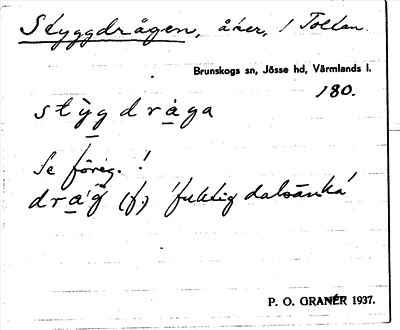 Styggdrågen, åker, / Toltan.
Brunskogs sn, Jösse hd, Värmlands l.
180.
stỳgdrȧga
Se föreg. !
dra'g̈ (f.) 'fuktig dalsänka'
P. O. GRANÉR 1937.